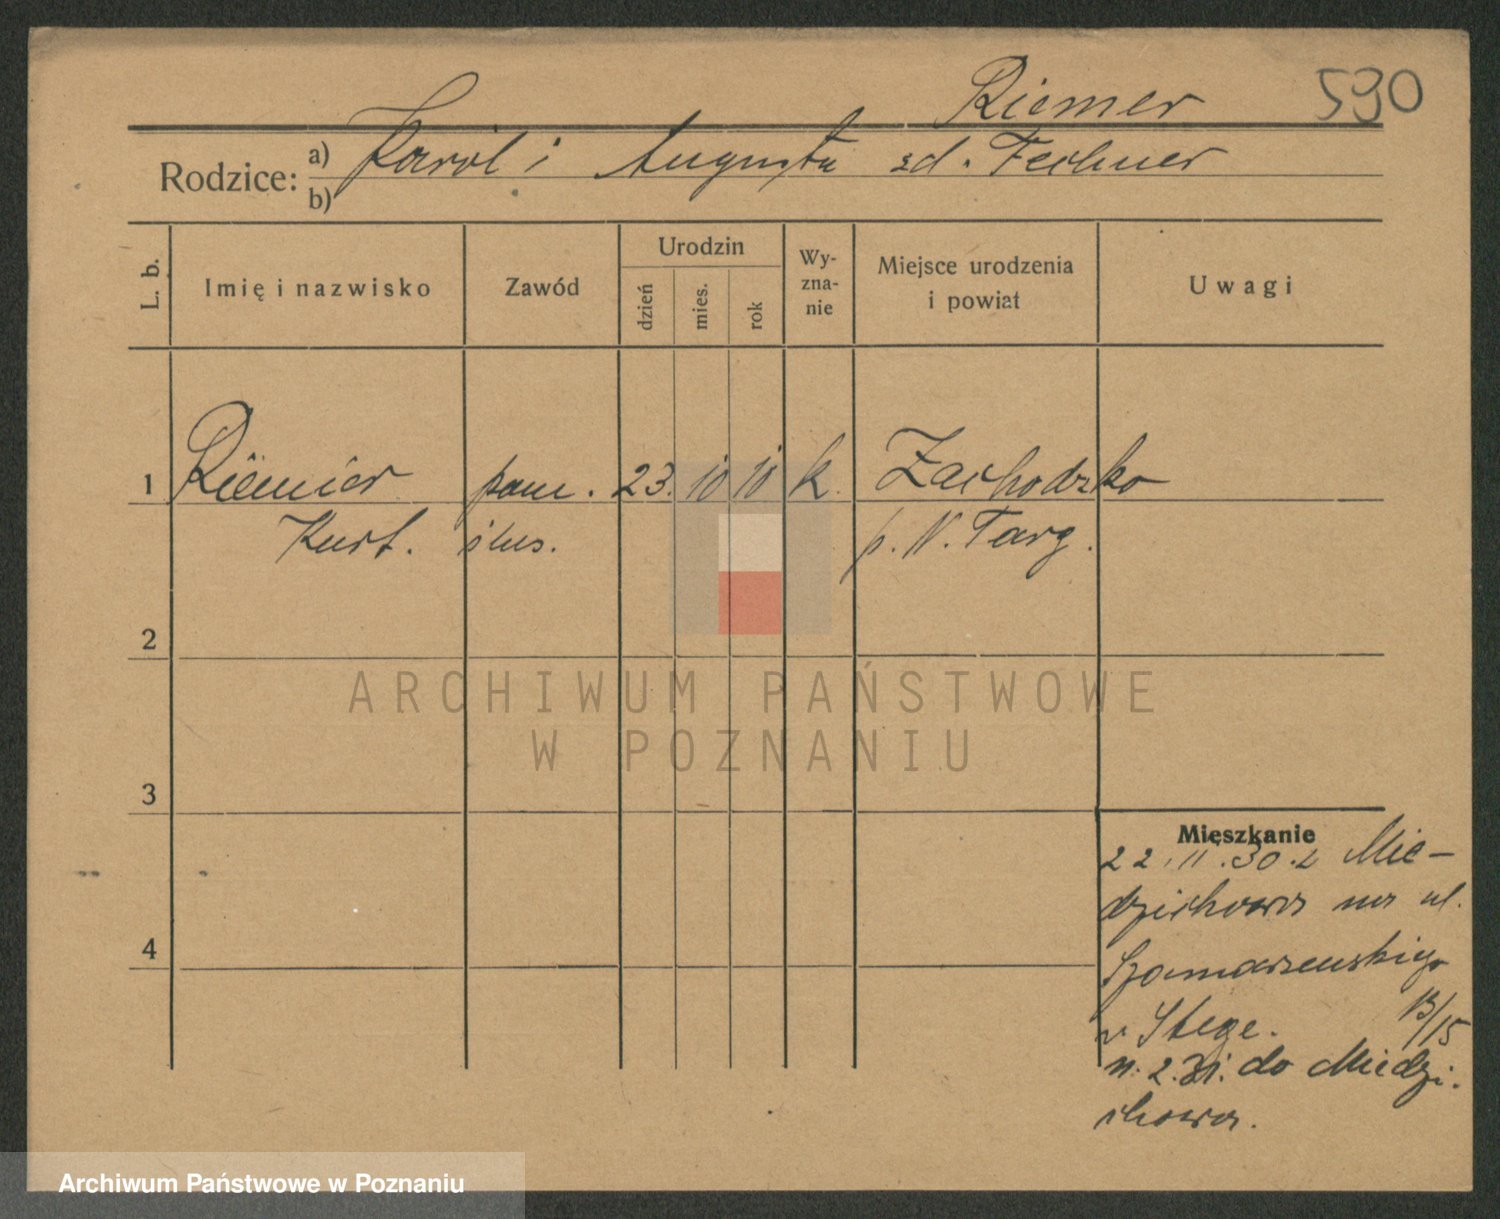 Riemer 590
Rodzice: a) Karol i Augusta zd. Fechner
b)
L. b. Imię i nazwisko Zawód Urodzin dzień mies. rok Wy-zna-nie Miejsce urodzenia i powiat Uwagi
1 Riemer 23. 10 10 k. Zachodzko
Kurt. p. N. Targ.
2
ARCHIWUM PAŃSTWOWE
W POZNANIU
3
Mieszkanie
22.11.30. z Mie-
dzichowa na ul.
Szamarzewskiego
13/15
v. Stege.
11.2.31. do Miedzi-
chowa.
4
Archiwum Państwowe w Poznaniu